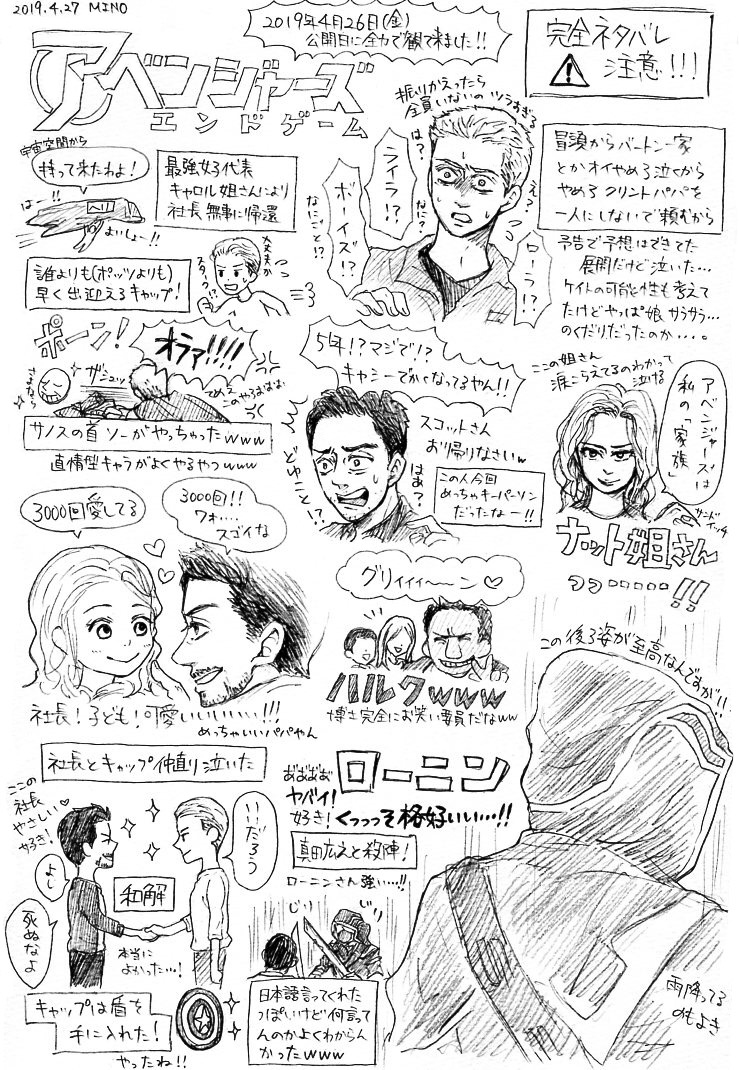 2019.4.27 MINO
2019年4月26日(金)
公開日に全力で観て来ました!!
完全ネタバレ
注意!!!
アベンジャーズ
エンドゲーム
宇宙空間から
持って来たわよ!
はー!!
よいしょー!!
最強女子代表
キャロル姐さんにより
社長無事に帰還
誰よりも(ポッツよりも)
早く出迎えるキャップ!
大丈夫か
スターク!?
振りかえったら
全員いないのツラすぎる
は?
ライラ!?
ボーイズ!?
なに?
なにごと!?
え?
ローラ!?
冒頭からバートン一家
とかオイやめろ泣くから
やめろクリントパパを
一人にしないで頼むから
予告で予想はできてた
展開だけど泣いた…
ケイトの可能性も考えて
たけどやっぱ娘サラサラ…
のくだりだったのか・・・。
ポーン!
オラァ!!!!
さよなら
ザシュッ
てめえ
このやろおおおお
サノスの首ソーがやっちゃったwww
直情型キャラがよくやるやつwww
5年!?マジで!?
キャシーでかくなってるやん!!
スコットさん
お帰りなさいw
どゆこと!?
はあ?
この人今回
めっちゃキーパーソン
だったなー!!
ここの姐さん
涙こらえてるのわかって
泣ける
アベンジャーズは
私の「家族」
サンドイッチ
ナット姐さん
3000回愛してる
3000回!!
ワォ…
スゴイな
社長!子ども!可愛いいいいい!!!
めっちゃいいパパやん
グリィィィ〜ーン♡
ハルクwww
博士完全にお笑い要員だなww
この後ろ姿が至高なんですが!!
社長とキャップ仲直り泣いた
ここの
社長
やさしい♡
好き!
いいだろう
よし
死ぬなよ
和解
本当に
よかった…!
キャップは盾を
手に入れた!
やったね!!
ああああ
ヤバイ!
好き!
ローニン
くっっっそ格好いい…!!
真田広之と殺陣!
ローニンさん強い…!!
じり
じり
日本語言ってくれた
っぽいけど何言って
んのかよくわからん
かったwww
雨降ってる
のもよき